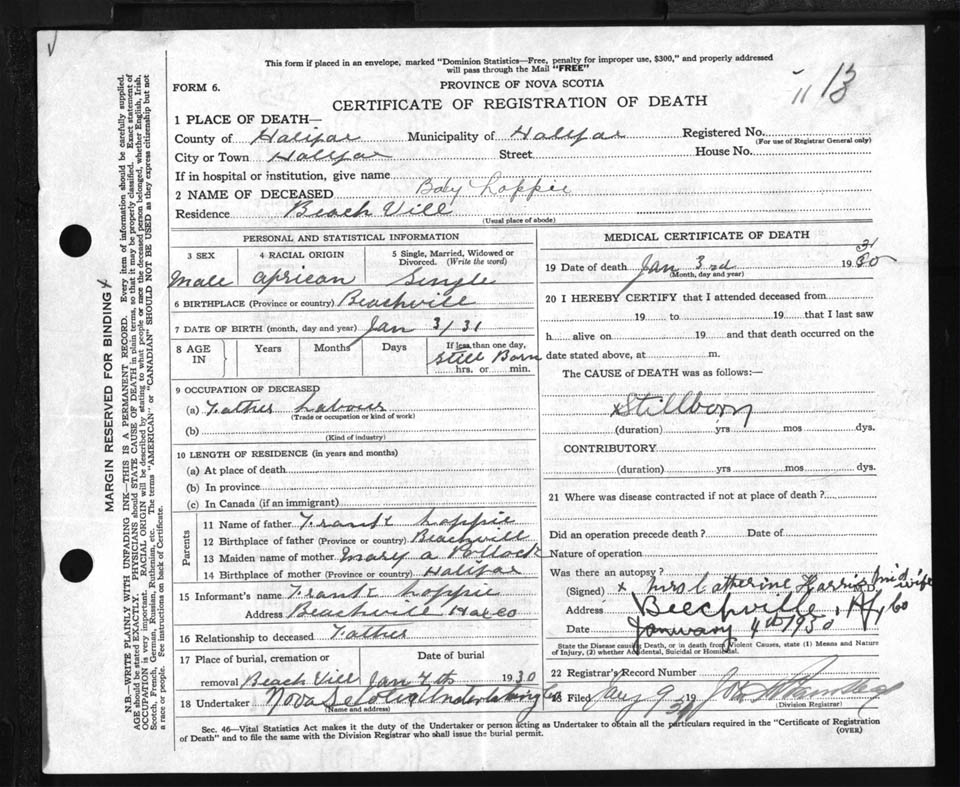 This form if placed in an envelope, marked "Dominion Statistics—Free, penalty for improper use, $300," and properly addressed
will pass through the Mail "FREE"
FORM 6.
PROVINCE OF NOVA SCOTIA
11 13
CERTIFICATE OF REGISTRATION OF DEATH
1 PLACE OF DEATH—
County of Halifax Municipality of Halifax Registered No.
(For use of Registrar General only)
City or Town Halifax Street House No.
If in hospital or institution, give name
2 NAME OF DECEASED Baby Loppie
Residence Beach Vill
(Usual place of abode)
PERSONAL AND STATISTICAL INFORMATION
3 SEX 4 RACIAL ORIGIN 5 Single, Married, Widowed or
Divorced. (Write the word)
male African Single
6 BIRTHPLACE (Province or country) Beachvill
7 DATE OF BIRTH (month, day and year) Jan 3/31
8 AGE IN Years Months Days If less than one day,
Still Born
hrs. or min.
9 OCCUPATION OF DECEASED
(a) Father Labour
(Trade or occupation or kind of work)
(b)
(Kind of industry)
10 LENGTH OF RESIDENCE (in years and months)
(a) At place of death
(b) In province
(c) In Canada (if an immigrant)
Parents
11 Name of father Frank Loppie
12 Birthplace of father (Province or country) Beachvill
13 Maiden name of mother Mary a Pollock
14 Birthplace of mother (Province or country) Halifax
15 Informant's name Frank Loppie
Address Beachvill Hax Co
16 Relationship to deceased Father
17 Place of burial, cremation or Date of burial
removal Beach Vill Jan 4th 1930
18 Undertaker Nova Scotia Undertaking Co
(Name and address)
MEDICAL CERTIFICATE OF DEATH
19 Date of death Jan 3rd 1930 31
(Month, day and year)
20 I HEREBY CERTIFY that I attended deceased from
19 to 19 that I last saw
h alive on 19 and that death occurred on the
date stated above, at m.
The CAUSE of DEATH was as follows:—
x Stillborn
(duration) yrs mos dys.
CONTRIBUTORY
(duration) yrs mos dys.
21 Where was disease contracted if not at place of death?
Did an operation precede death? Date of
Nature of operation
Was there an autopsy?
(Signed) x Mrs Catherine Harris mid wife M.D.
Address Beechville, Hfx Co
Date January 4th 1930
State the Disease causing Death, or in death from Violent Causes, state (1) Means and Nature
of Injury, (2) whether Accidental, Suicidal or Homicidal.
22 Registrar's Record Number
Filed Jany 9 1931
(Division Registrar)
Sec. 46—Vital Statistics Act makes it the duty of the Undertaker or person acting as Undertaker to obtain all the particulars required in the "Certificate of Registration
of Death" and to file the same with the Division Registrar who shall issue the burial permit.
(OVER)
MARGIN RESERVED FOR BINDING
N.B.—WRITE PLAINLY WITH UNFADING INK—THIS IS A PERMANENT RECORD. Every item of information should be carefully supplied.
AGE should be stated EXACTLY. PHYSICIANS should STATE CAUSE OF DEATH in plain terms, so that it may be properly classified. Exact statement of
OCCUPATION is very important. RACIAL ORIGIN will be described by stating to what people or race the deceased person belonged, whether English, Irish,
Scotch, French, German, Russian, Ruthenian, etc. The terms "AMERICAN" or "CANADIAN" SHOULD NOT BE USED as they express citizenship but not
a race or people. See instructions on back of Certificate.